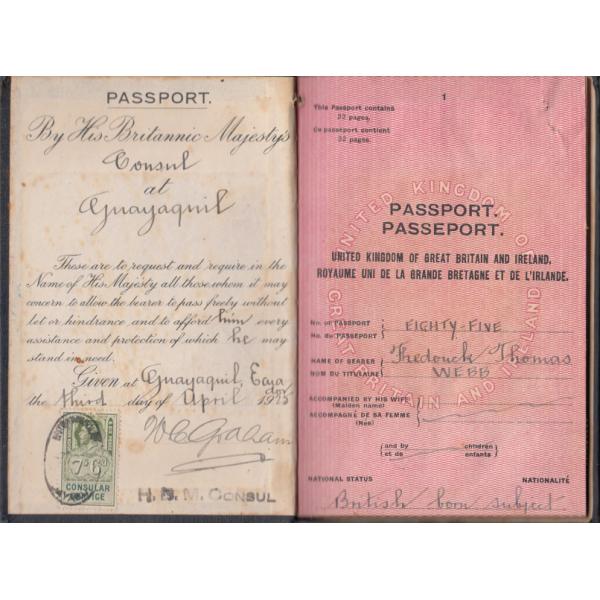 PASSPORT.
By His Britannic Majesty's
Consul
at
Guayaquil
These are to request and require in the
Name of His Majesty all those whom it may
concern to allow the bearer to pass freely without
let or hindrance and to afford him every
assistance and protection of which he may
stand in need.
Given at Guayaquil, Ecua
dor
the third day of April 1925
W C Graham
7s 6d
CONSULAR
SERVICE
H. B. M. CONSUL
1
This Passport contains
32 pages.
Ce passeport contient
32 pages.
UNITED KINGDOM OF
GREAT BRITAIN AND IRELAND
PASSPORT.
PASSEPORT.
UNITED KINGDOM OF GREAT BRITAIN AND IRELAND,
ROYAUME UNI DE LA GRANDE BRETAGNE ET DE L'IRLANDE.
No. of PASSPORT EIGHTY-FIVE
No. du PASSEPORT
NAME OF BEARER Fredrick Thomas
NOM DU TITULAIRE WEBB
ACCOMPANIED BY HIS WIFE
(Maiden name)
ACCOMPAGNÉ DE SA FEMME
(Née)
and by children
et de enfants
NATIONAL STATUS NATIONALITÉ
British born subject